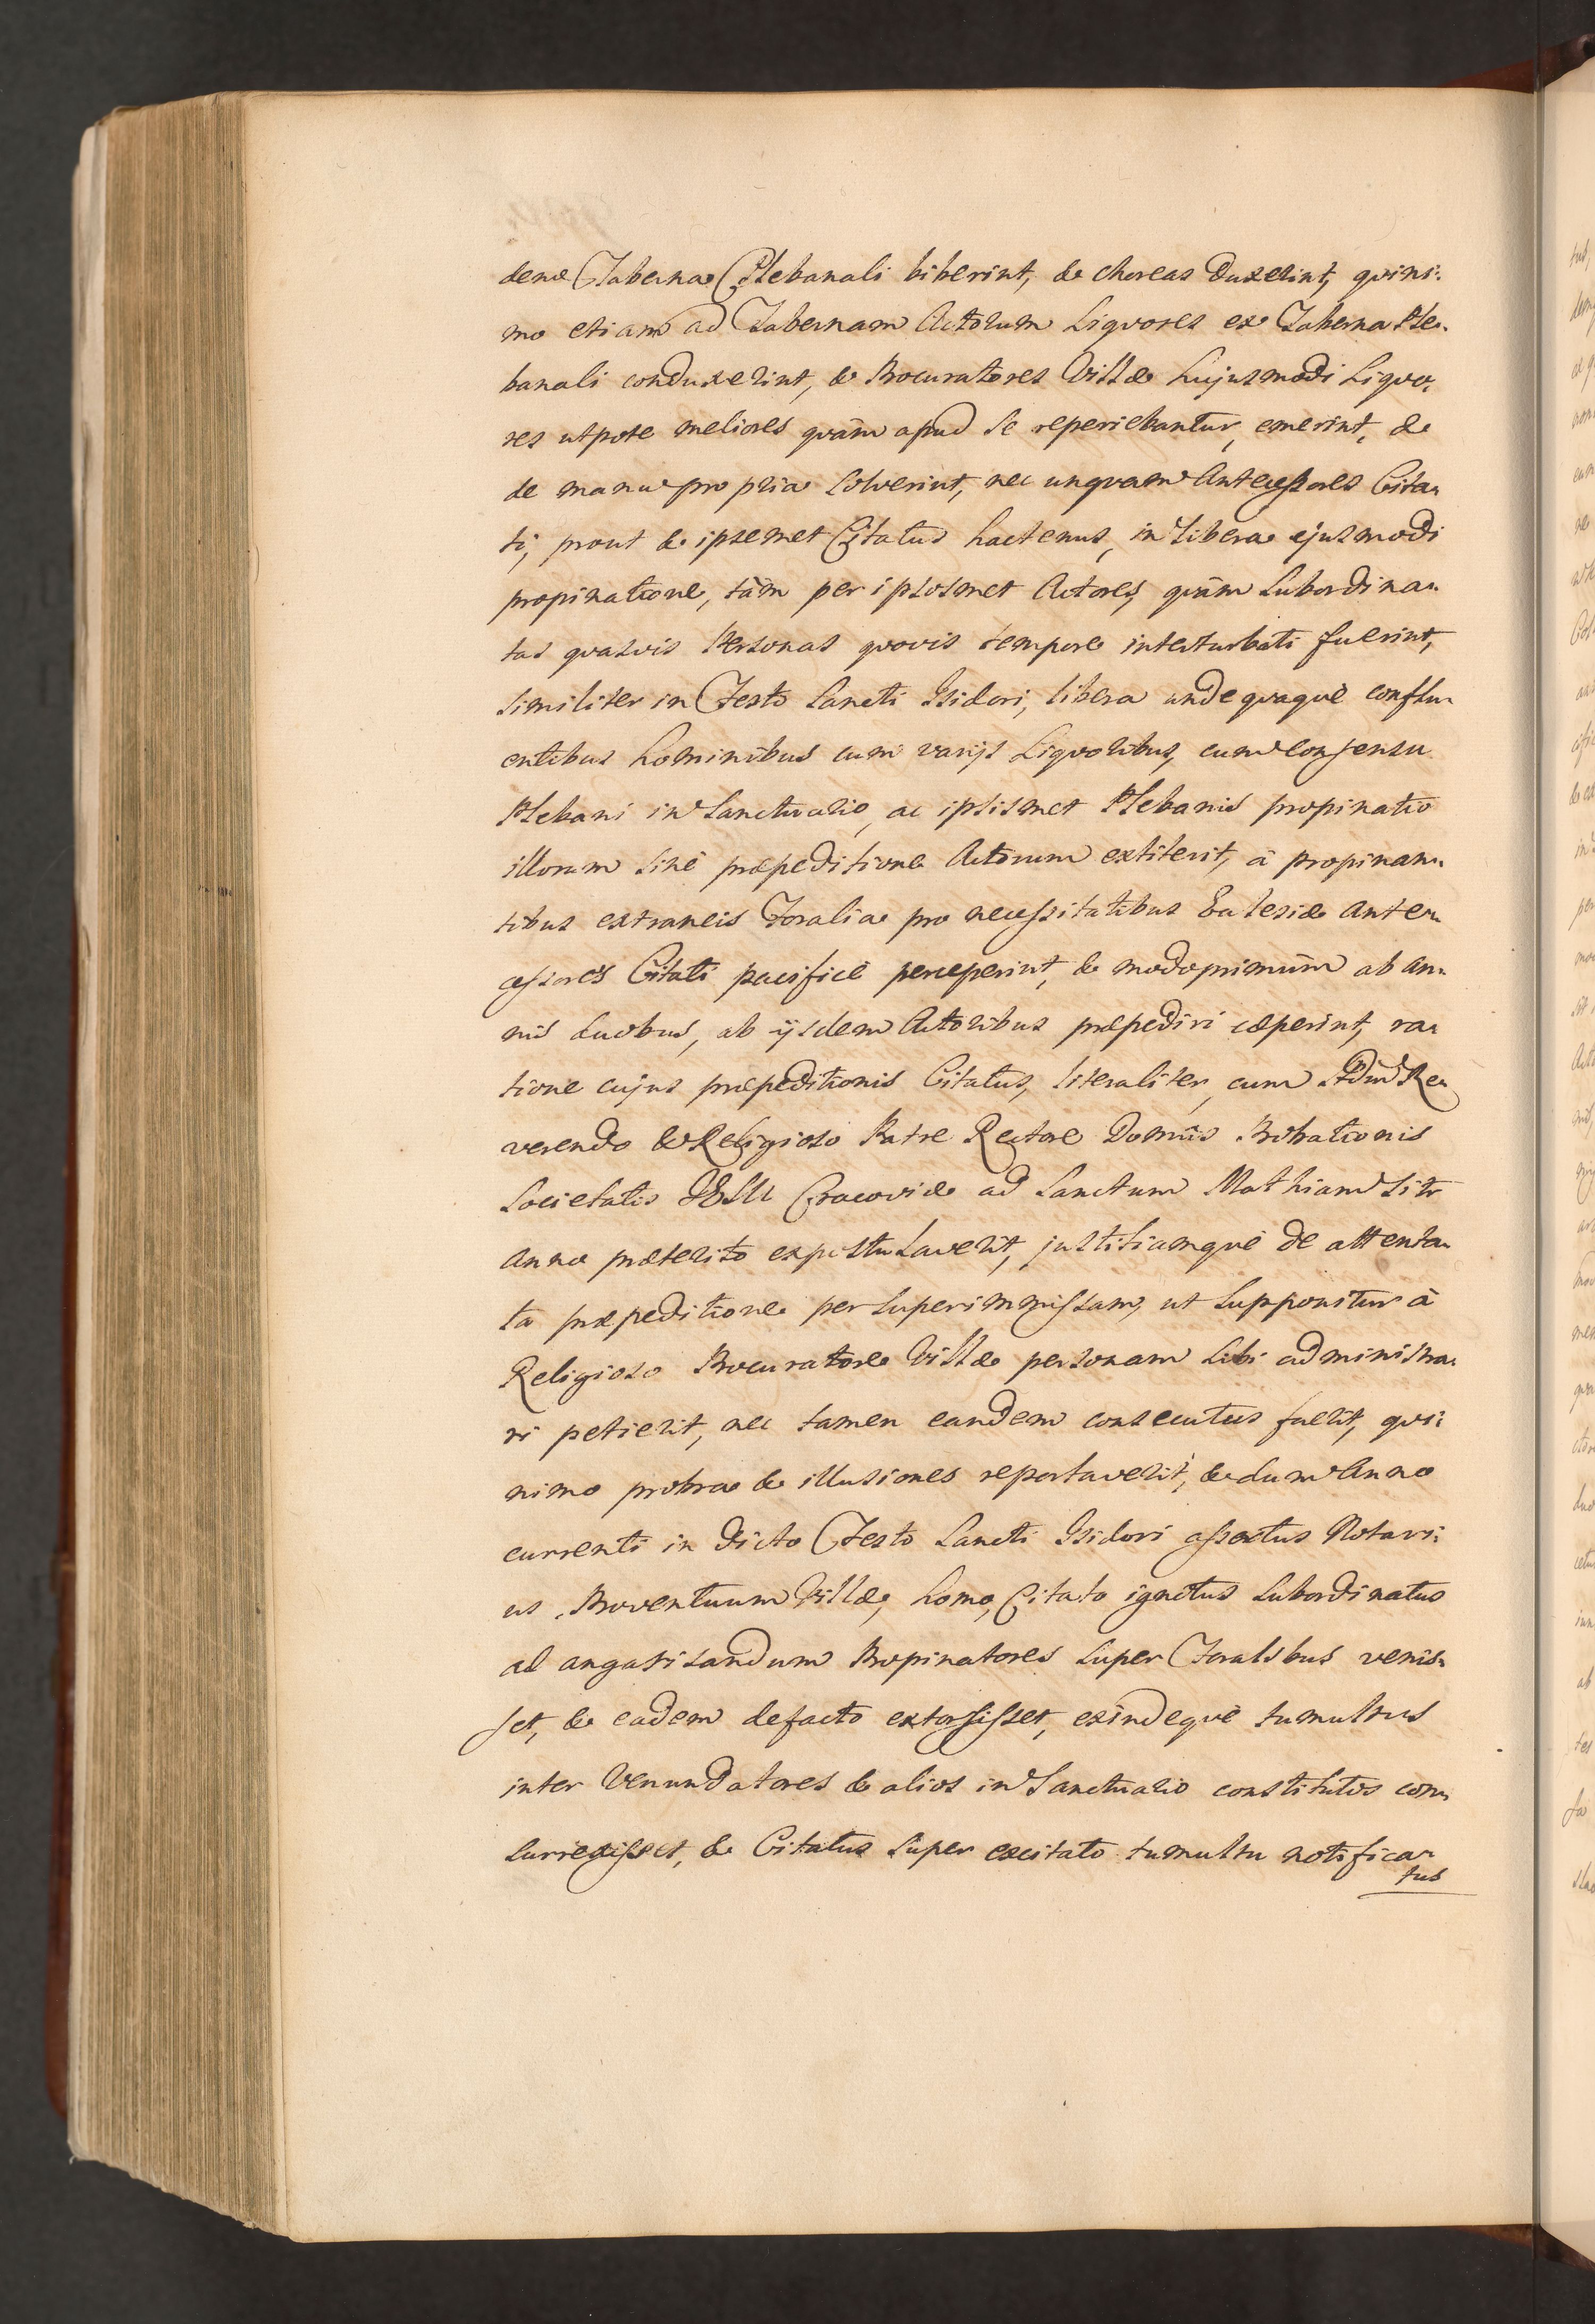 dem Taberna Plebanali biberint, & choreas duxerint, quini:
mo etiam ad Tabernam Actorum Liquores ex Taberna Ple:
banali conduxerint, & Procuratores Villæ hujusmodi Liquo:
res utpote meliores quàm apud se reperiebantur, emerint, &
de manu propria solverint, nec unquam Antecessores Cita:
ti, prout & ipsemet Citatus hactenus, in libera ejusmodi
propinatione, tàm per ipsosmet Actores, quàm subordina:
tas quasvis Personas quovis tempore interturbati fuerint,
similiter in Festo Sancti Isidori, libera undequaquè conflu:
entibus hominibus cum varijs Liquoribus, cum consensu
Plebani in Sanctuario, ac ipsismet Plebanis propinatio
illorum sinè præpeditione Actorum extiterit, à propinan:
tibus extraneis Foralia pro necessitatibus Eclesiæ Ante:
cessores Citati pacificè perceperint, & modo primùm ab an:
nis duobus, ab ijsdem Actoribus præpediri cæperint, ra:
tione cujus præpeditionis Citatus, literaliter, cum Adm Re:
verendo & Religioso Patre Rectore Domûs Probationis
Societatis JESU Cracoviæ ad Sanctum Mathiam sitæ
Anno præterito expostulaverit, justitiamquè de attenta:
ta præpeditione per superimmissam, ut supponitur à
Religioso Procuratore Villæ personam sibi administra:
ri petierit, nec tamen eandem consecutus fuerit, qui:
nimo probra & illusiones reportaverit, & dum Anno
currenti in dicto Festo Sancti Isidori assertus Notari:
us Proventuum Villæ, homo, Citato ignotus subordinatus
ad angarisandum Propinatores super Foralibus venis:
set, & eadem defacto extorsisset, exindequè tumultus
inter Venundatores & alios in Sanctuario constitutos con:
surrexisset, & Citatus super excitato tumultu notifica:
tus